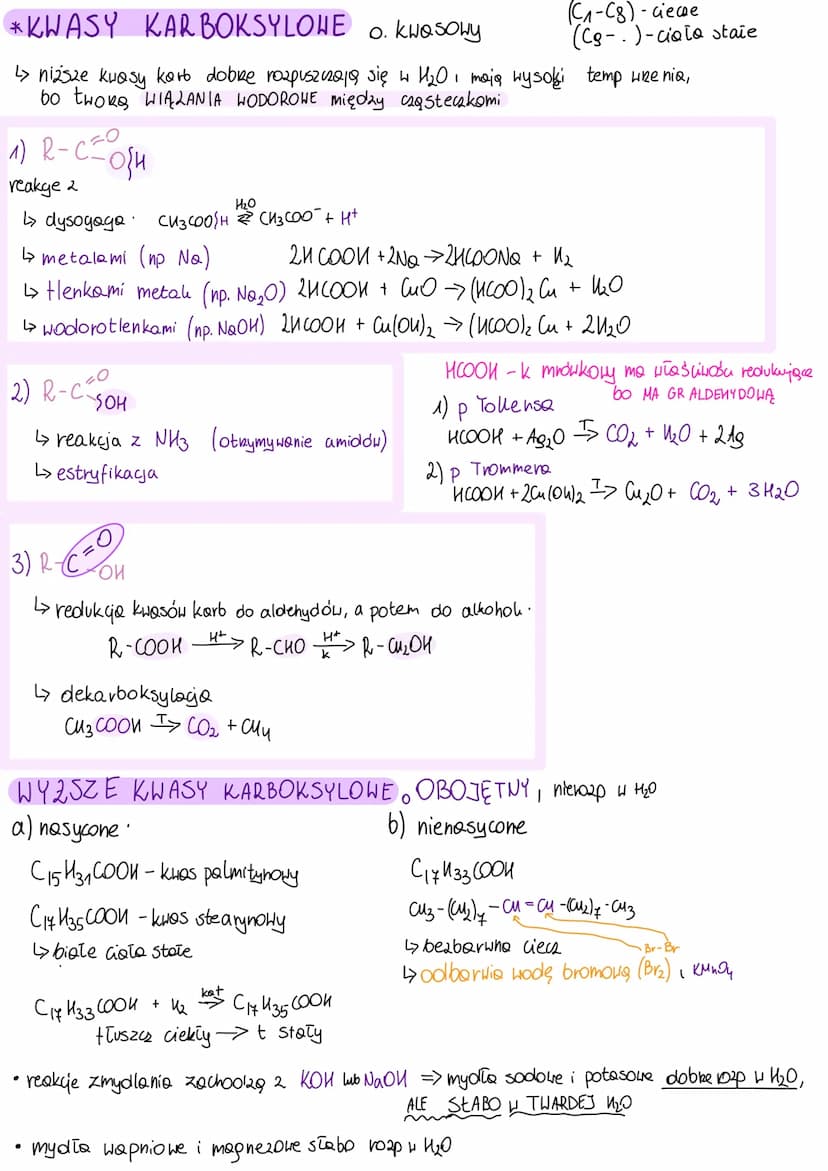 *KWASY KARBOKSYLOWE o. kwasowy
(C1-C8) - ciecze
(C9-..) - ciała stałe
↳ niższe kwasy karb dobrze rozpuszczają się w H₂O i mają wysoki temp wrzenia,
bo tworzą WIĄZANIA WODOROWE między cząsteczkami
1) R-C=O
-O{H
reakcje z
↳ dysocjacja: CH3COO{H ⇄ CH3COO⁻ + H⁺
H₂O
↳ metalami (np Na) 2HCOOH + 2Na → 2HCOONa + H₂
↳ tlenkami metali (np. Na₂O) 2HCOOH + CuO → (HCOO)₂Cu + H₂O
↳ wodorotlenkami (np. NaOH) 2HCOOH + Cu(OH)₂ → (HCOO)₂Cu + 2H₂O
2) R-C=O
{OH
↳ reakcja z NH₃ (otrzymywanie amidów)
↳ estryfikacja
HCOOH - k mrówkowy ma właściwości redukujące
bo MA GR ALDEHYDOWĄ
1) p Tollensa
HCOOH + Ag₂O →T CO₂ + H₂O + 2Ag
2) p Trommera
HCOOH + 2Cu(OH)₂ →T Cu₂O + CO₂ + 3H₂O
3) R-C=O
-OH
↳ redukcja kwasów karb do aldehydów, a potem do alkoholi.
R-COOH →H⁺ R-CHO →H⁺ k R-CH₂OH
↳ dekarboksylacja
CH₃COOH →T CO₂ + CH₄
WYŻSZE KWASY KARBOKSYLOWE o OBOJĘTNY, nierozp w H₂O
a) nasycone:
C₁₅H₃₁COOH - kwas palmitynowy
C₁₇H₃₅COOH - kwas stearynowy
↳ białe ciała stałe
C₁₇H₃₃COOH + H₂ →kat C₁₇H₃₅COOH
tłuszcz ciekły → t stały
b) nienasycone
C₁₇H₃₃COOH
CH₃-(CH₂)₇-CH=CH-(CH₂)₇-CH₃
↳ bezbarwna ciecz
Br-Br
↳ odbarwia wodę bromową (Br₂) i KMnO₄
• reakcje zmydlania zachodzą z KOH lub NaOH ⇒ mydła sodowe i potasowe dobrze rozp w H₂O,
ALE SŁABO W TWARDEJ H₂O
• mydła wapniowe i magnezowe słabo rozp w H₂O